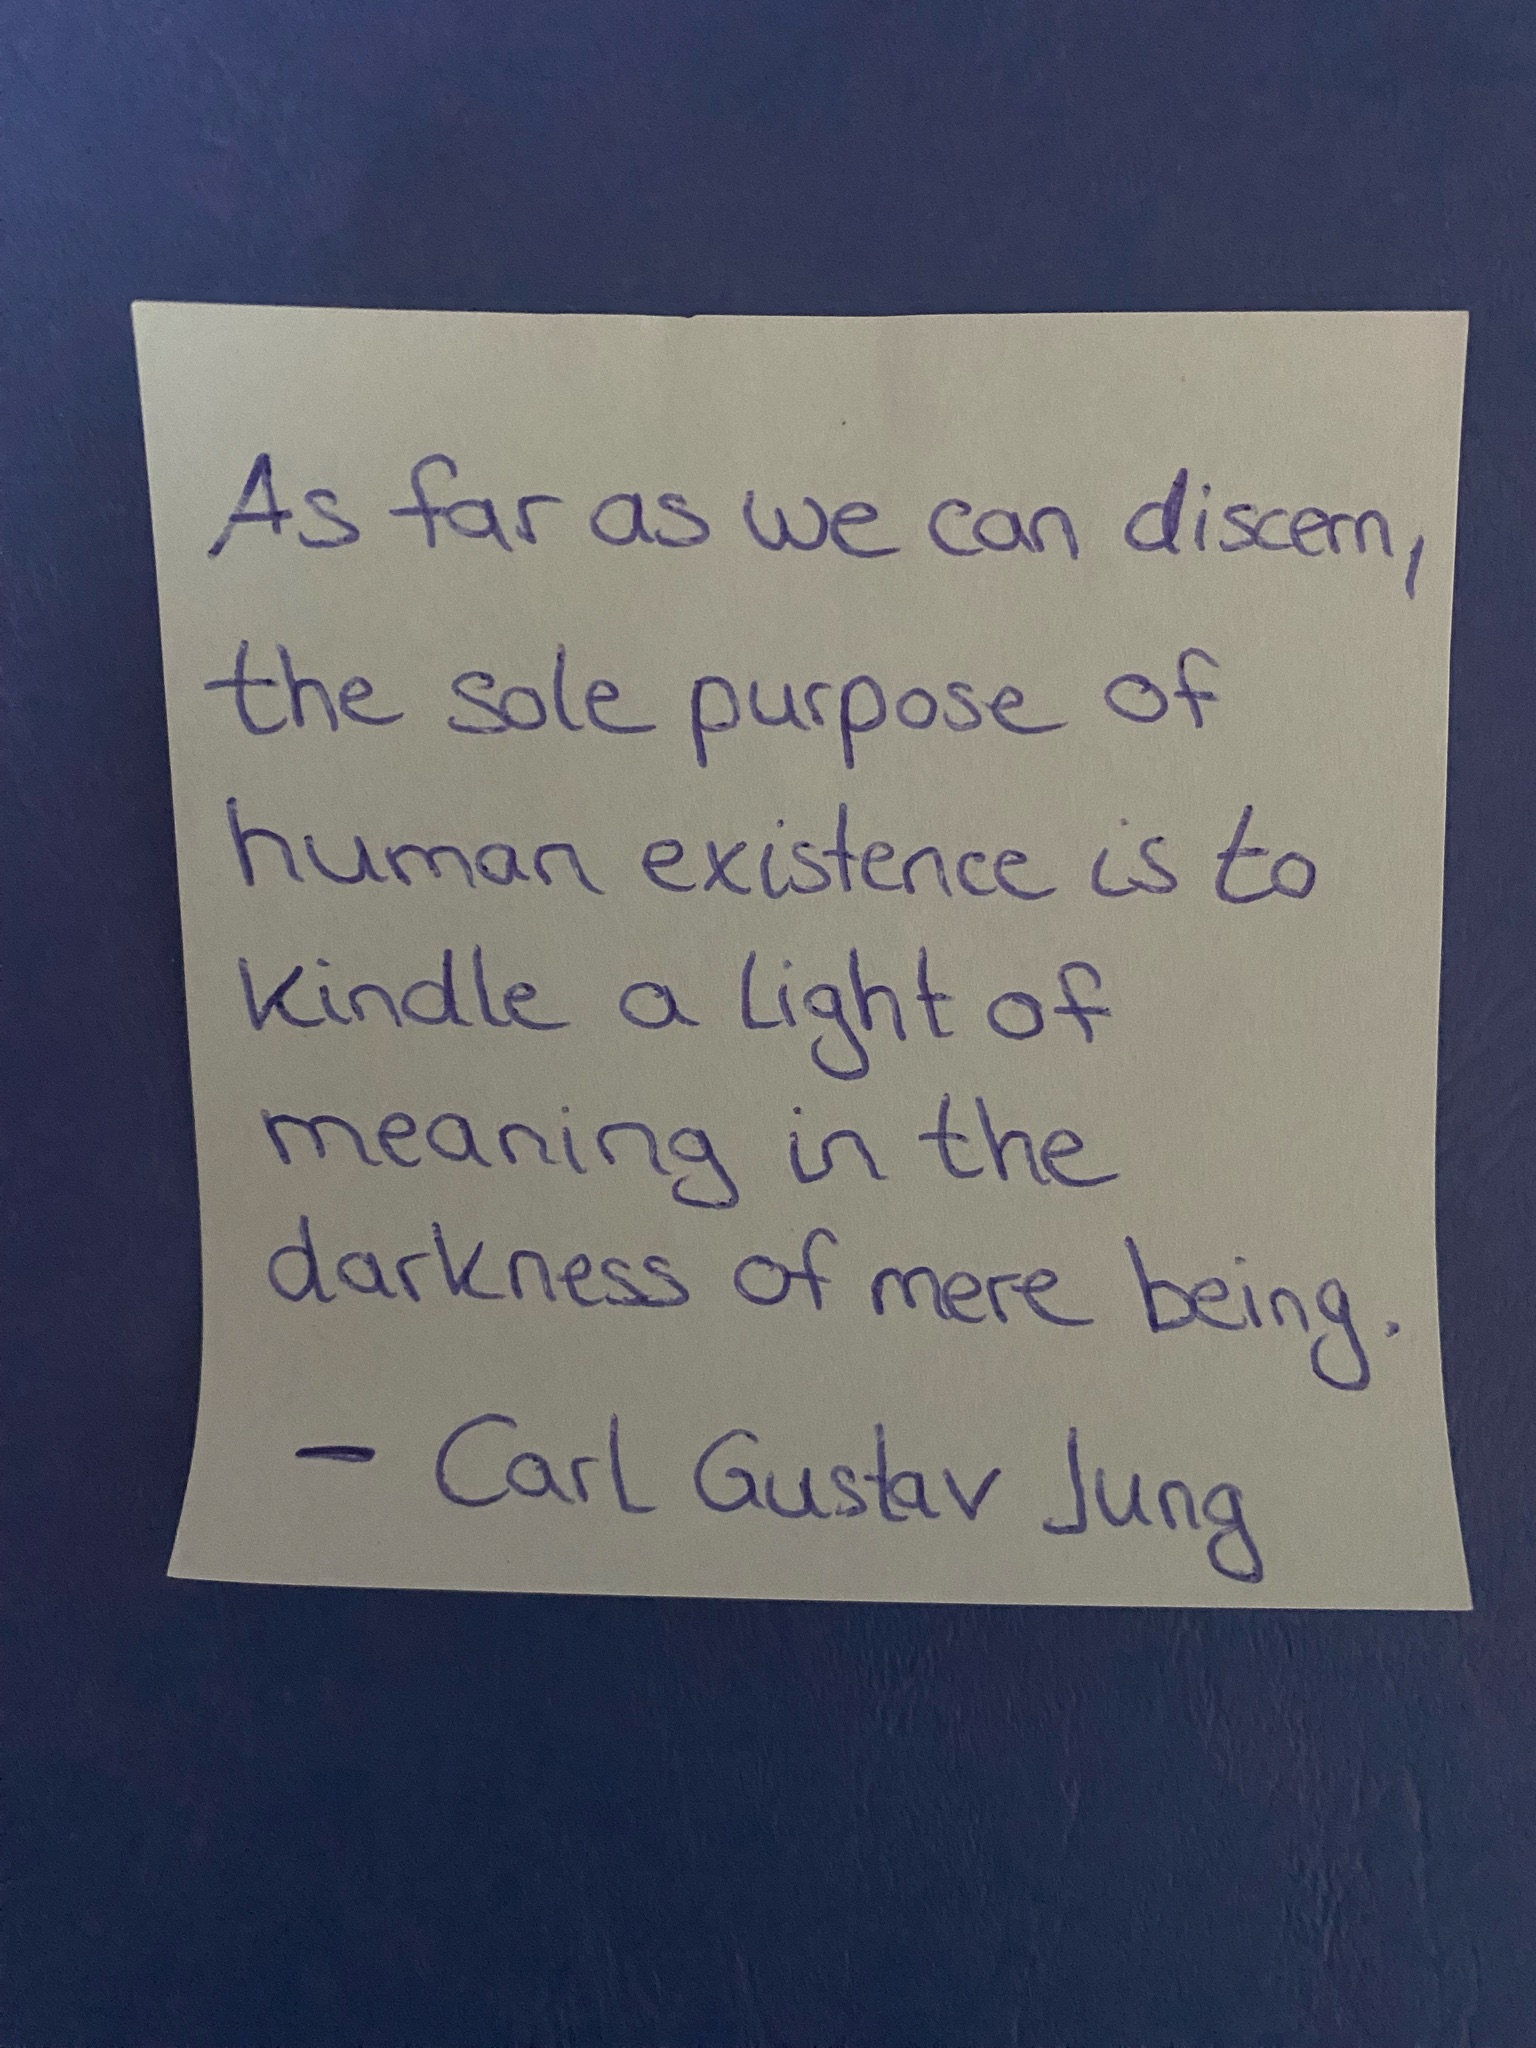 As far as we can discern,
the sole purpose of
human existence is to
kindle a light of
meaning in the
darkness of mere being.
- Carl Gustav Jung